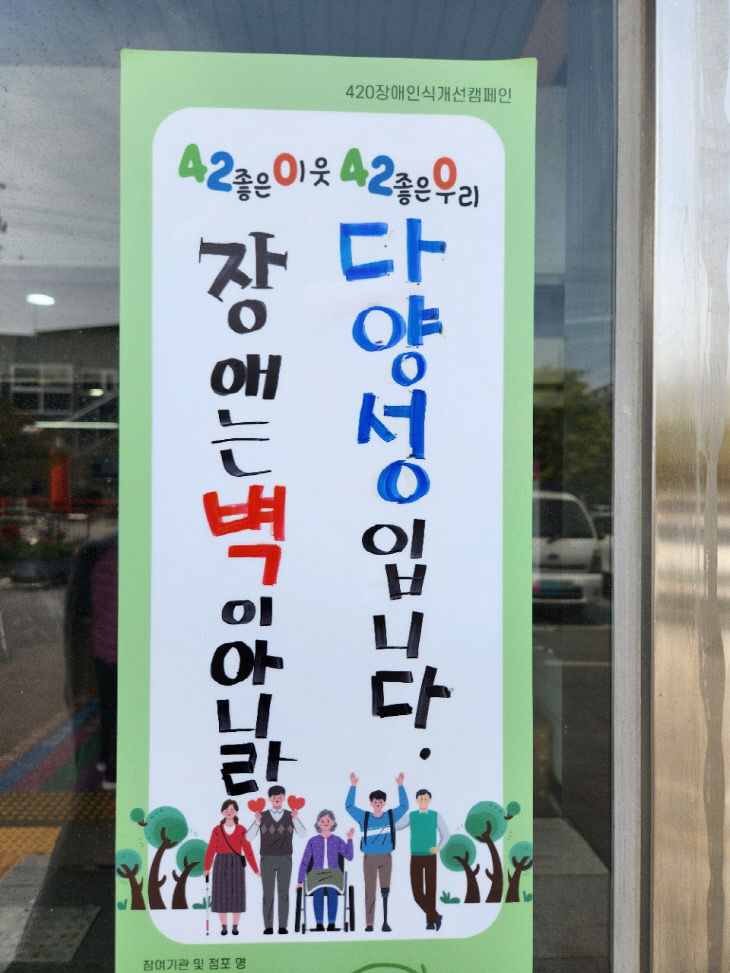 420장애인식개선캠페인
42좋은이웃 42좋은우리
장애는벽이아니라
다양성입니다.
참여기관 및 점포 명